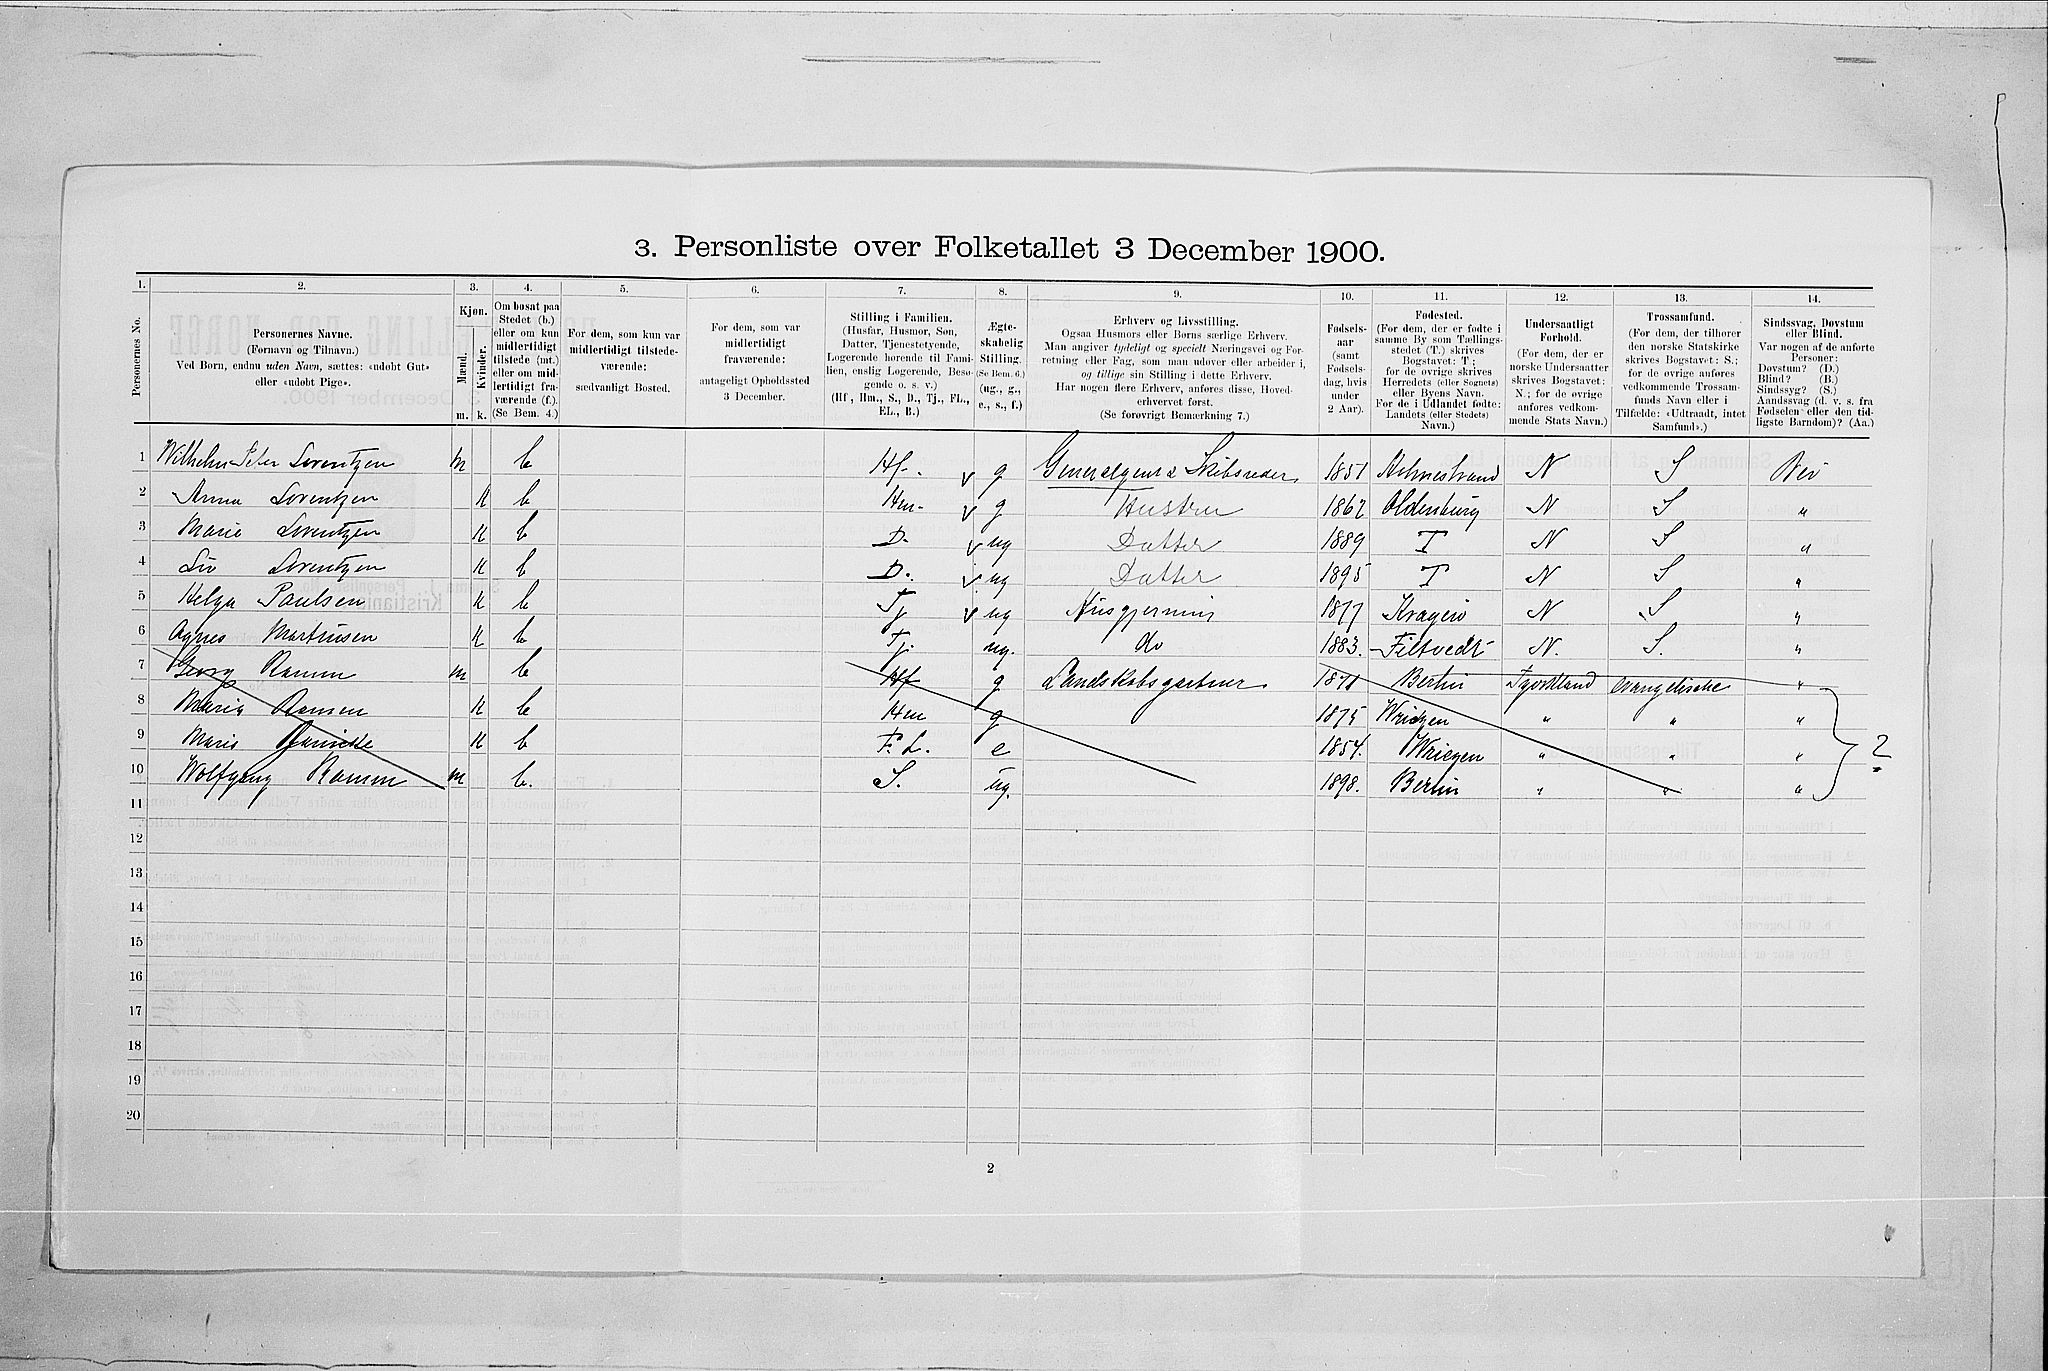 3. Personliste over Folketallet 3 December 1900.
1. 2. 3. 4. 5. 6. 7. 8. 9. 10. 11. 12. 13. 14.
Personernes No.
Personernes Navne.
(Fornavn og Tilnavn.)
Ved Børn, endnu uden Navn, sættes: «udøbt Gut»
eller «udøbt Pige».
Kjøn.
Mænd.
Kvinder.
m. k.
Om bosat paa
Stedet (b.)
eller om kun
midlertidigt
tilstede (mt.)
eller om mid-
lertidigt fra-
værende (f.).
(Se Bem. 4.)
For dem, som kun var
midlertidigt tilstede-
værende:
sædvanligt Bosted.
For dem, som var
midlertidigt
fraværende:
antageligt Opholdssted
3 December.
Stilling i Familien.
(Husfar, Husmor, Søn,
Datter, Tjenestetyende,
Logerende hørende til Fami-
lien, enslig Logerende, Besø-
gende o. s. v.)
(Hf., Hm., S., D., Tj., FL.,
EL., B.)
Ægte-
skabelig
Stilling.
(Se Bem. 6.)
(ug., g.,
e., s., f.)
Erhverv og Livsstilling.
Ogsaa Husmors eller Børns særlige Erhverv.
Man angiver tydeligt og specielt Næringsvei og For-
retning eller Fag, som man udøver eller arbeider i,
og tillige sin Stilling i dette Erhverv.
Har nogen flere Erhverv, anføres disse, Hoved-
erhvervet først.
(Se forøvrigt Bemærkning 7.)
Fødsels-
aar
(samt
Fødsels-
dag, hvis
under
2 Aar).
Fødested.
(For dem, der er fødte i
samme By som Tællings-
stedet (T.) skrives
Bogstavet: T;
for de øvrige skrives
Herredets (eller Sognets)
eller Byens Navn.
For de i Udlandet fødte:
Landets (eller Stedets)
Navn.)
Undersaatligt
Forhold.
(For dem, der er
norske Undersaatter
skrives Bogstavet:
N.; for de øvrige
anføres vedkom-
mende Stats Navn.)
Trossamfund.
(For dem, der tilhører
den norske Statskirke
skrives Bogstavet: S.;
for de øvrige anføres
vedkommende Trossam-
funds Navn eller i
Tilfælde: «Udtraadt, intet
Samfund».)
Sindssvag, Døvstum
eller Blind.
Var nogen af de anførte
Personer:
Døvstum? (D.)
Blind? (B.)
Sindssyg? (S.)
Aandssvag (d. v. s. fra
Fødselen eller den tid-
ligste Barndom)? (Aa.)
1 Wilhelm Peter Lorentzen m b Hf. v g Generalagent & Skibsreder 1851 Holmestrand N S Nei
2 Anna Lorentzen K b Hm. v g Hustru 1862 Oldenburg N S "
3 Marie Lorentzen K b D. v ug Datter 1889 T N S "
4 Liv Lorentzen K b D. v ug Datter 1895 T N S "
5 Helga Paulsen K b Tj v ug Husgjerning 1877 Kragerø N S "
6 Agnes Martinsen K b Tj. ug. do 1883. Filtvedt N. S. "
7 Georg m b Hf g Landskabsgartner 1871 Berlin Tyskland evangelische "
8 Maria K b Hm g 1875 Wriezen " " "
9 Marie K b F. L. e 1854. Wriezen " " " ?
10 Wolfgang m b. S. ug. 1898. Berlin " " "
11
12
13
14
15
16
17
18
19
20
2